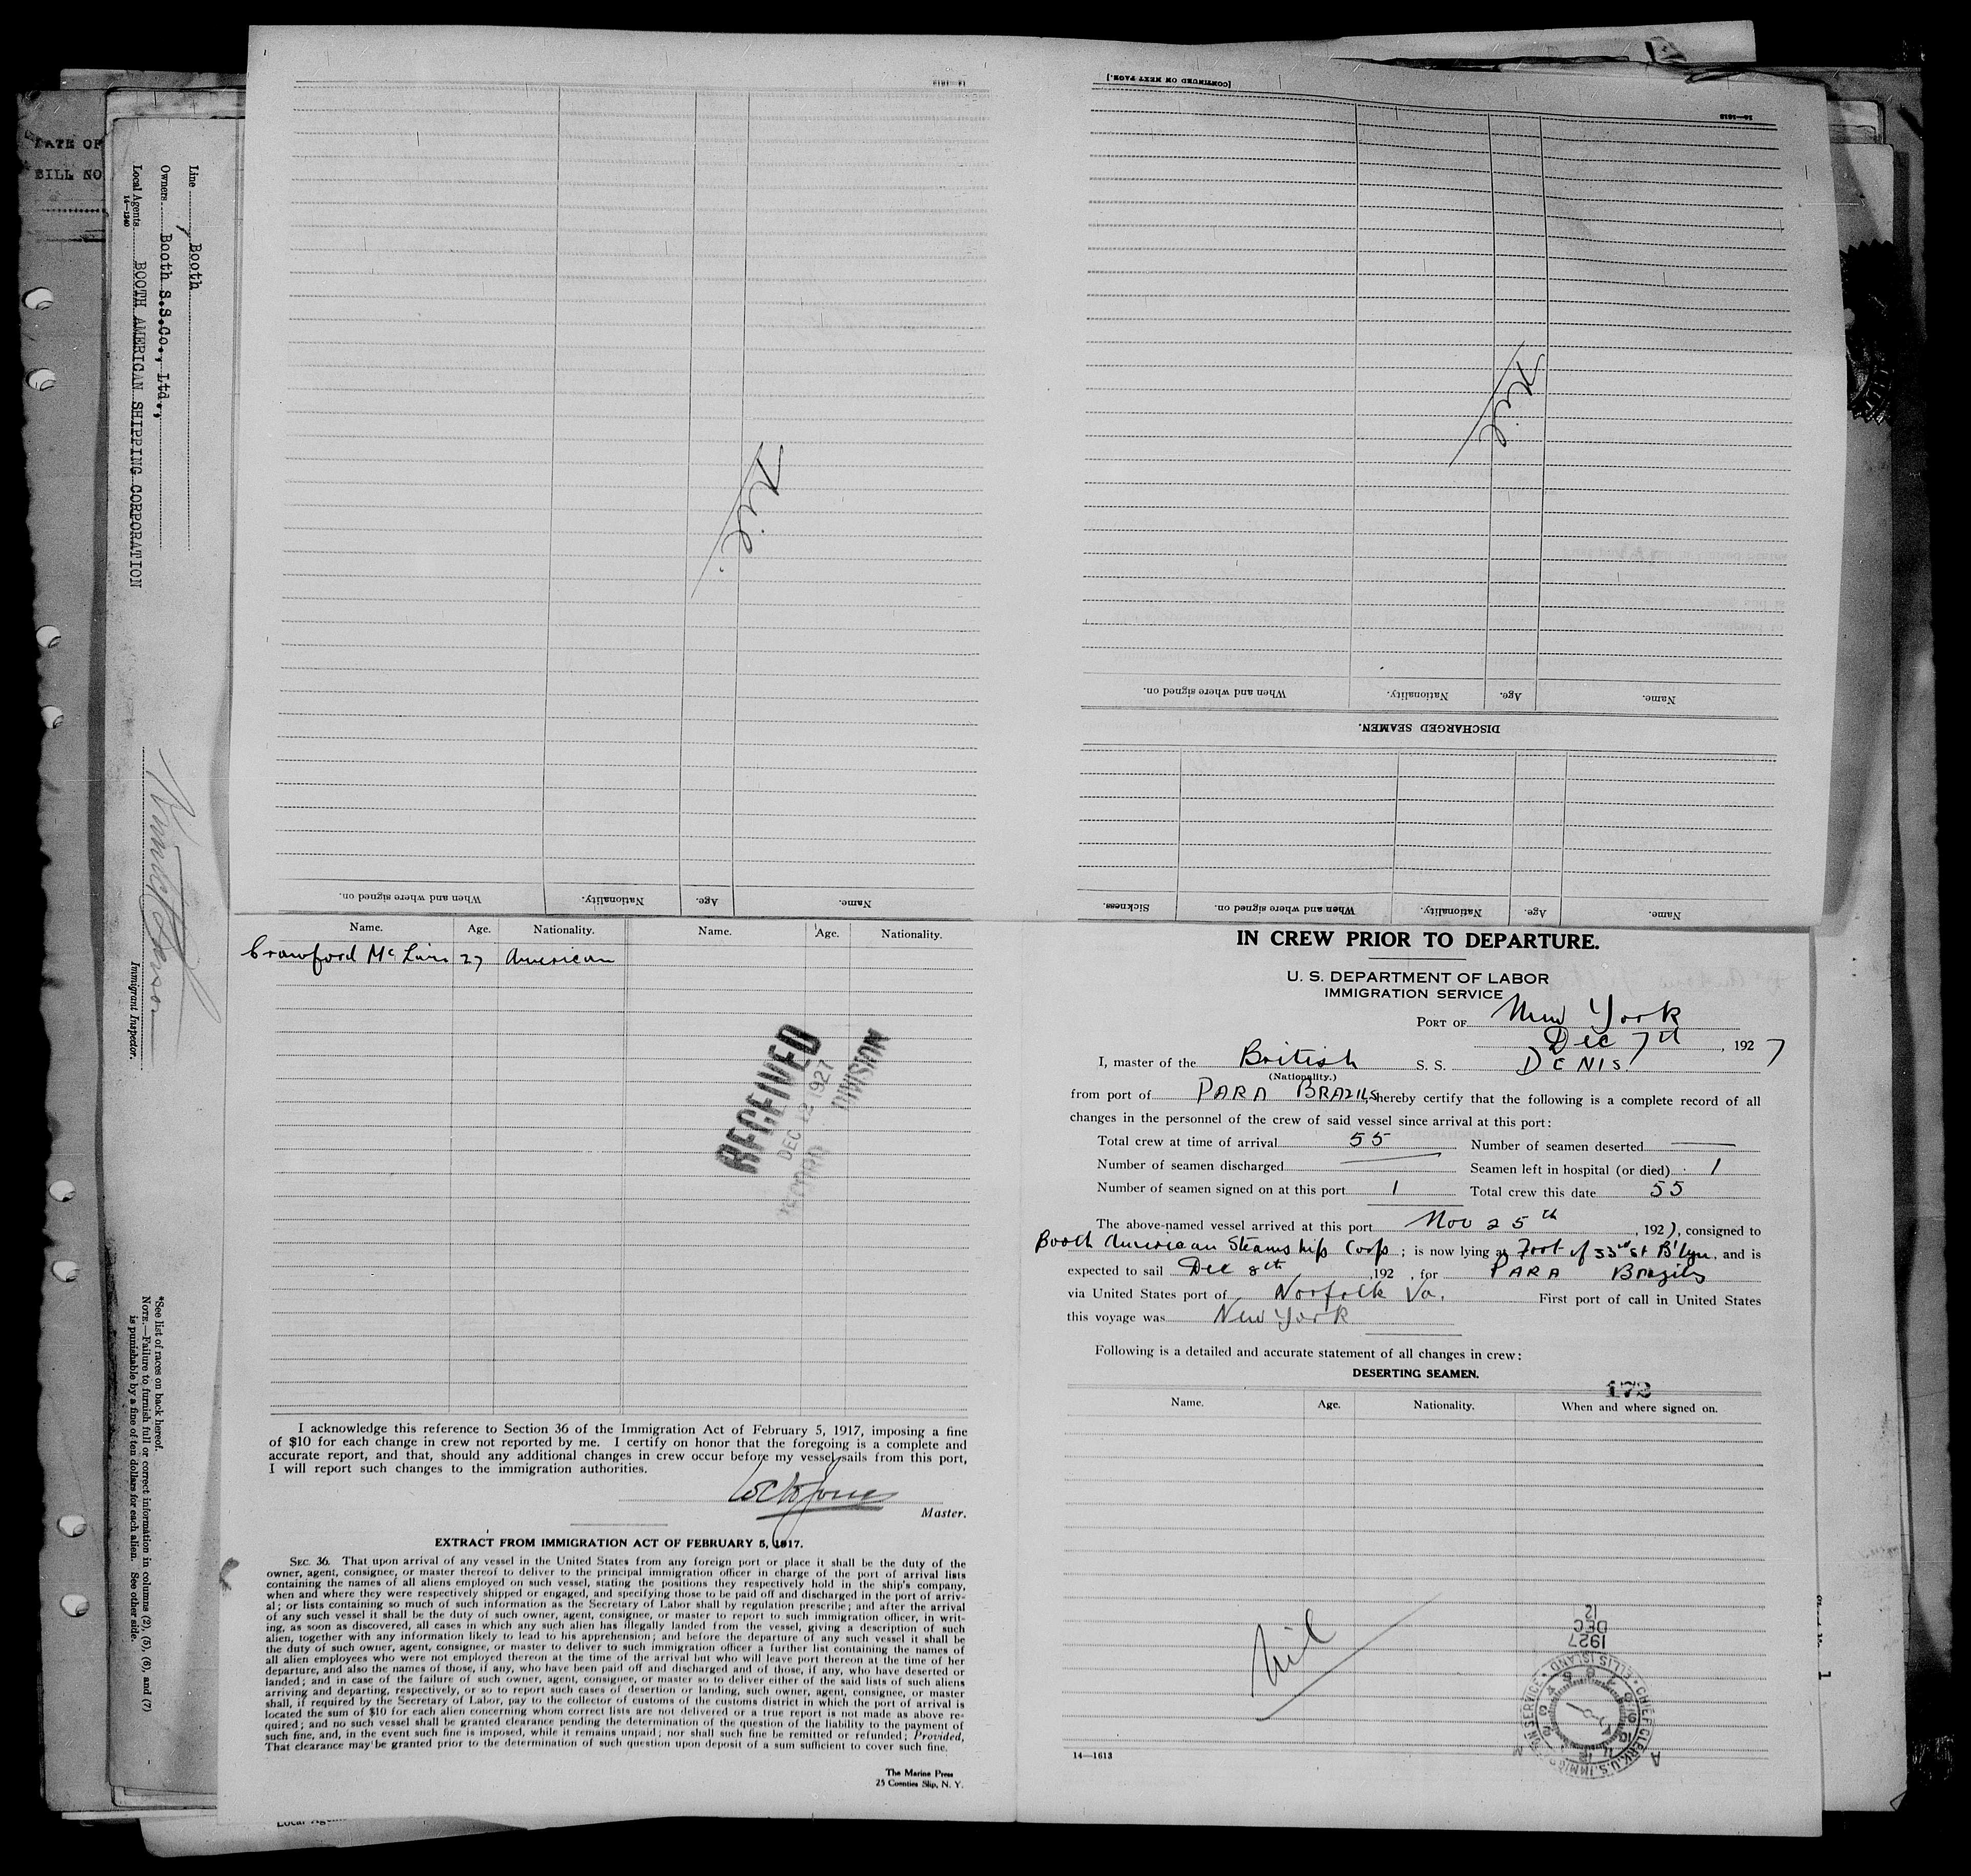 DATE OF
BILL NO
Line Booth
Owners Booth S.S.Co., Ltd.,
Local Agents BOOTH AMERICAN SHIPPING CORPORATION
14—1240
Immigrant Inspector.
*See list of races on back hereof.
NOTE.—Failure to furnish full or correct information in columns (2), (5), (6), and (7)
is punishable by a fine of ten dollars for each alien. See other side.
14—1613
Nil.
When and where signed on. Nationality. Age. Name.
[CONTINUED ON NEXT PAGE.]
14—1613
Nil.
When and where signed on. Nationality. Age. Name.
DISCHARGED SEAMEN.
Sickness. When and where signed on. Nationality. Age. Name.
Name. Age. Nationality. Name. Age. Nationality.
Crawford 27 American
RECEIVED
DEC 12 1927
RECORD DIVISION
I acknowledge this reference to Section 36 of the Immigration Act of February 5, 1917, imposing a fine
of $10 for each change in crew not reported by me. I certify on honor that the foregoing is a complete and
accurate report, and that, should any additional changes in crew occur before my vessel sails from this port,
I will report such changes to the immigration authorities.
Master.
EXTRACT FROM IMMIGRATION ACT OF FEBRUARY 5, 1917.
SEC. 36. That upon arrival of any vessel in the United States from any foreign port or place it shall be the duty of the
owner, agent, consignee, or master thereof to deliver to the principal immigration officer in charge of the port of arrival lists
containing the names of all aliens employed on such vessel, stating the positions they respectively hold in the ship's company,
when and where they were respectively shipped or engaged, and specifying those to be paid off and discharged in the port of arriv-
al; or lists containing so much of such information as the Secretary of Labor shall by regulation prescribe; and after the arrival
of any such vessel it shall be the duty of such owner, agent, consignee, or master to report to such immigration officer, in writ-
ing, as soon as discovered, all cases in which any such alien has illegally landed from the vessel, giving a description of such
alien, together with any information likely to lead to his apprehension; and before the departure of any such vessel it shall be
the duty of such owner, agent, consignee, or master to deliver to such immigration officer a further list containing the names of
all alien employees who were not employed thereon at the time of the arrival but who will leave port thereon at the time of her
departure, and also the names of those, if any, who have been paid off and discharged and of those, if any, who have deserted or
landed; and in case of the failure of such owner, agent, consignee, or master so to deliver either of the said lists of such aliens
arriving and departing, respectively, or so to report such cases of desertion or landing, such owner, agent, consignee, or master
shall, if required by the Secretary of Labor, pay to the collector of customs of the customs district in which the port of arrival is
located the sum of $10 for each alien concerning whom correct lists are not delivered or a true report is not made as above re-
quired; and no such vessel shall be granted clearance pending the determination of the question of the liability to the payment of
such fine, and, in the event such fine is imposed, while it remains unpaid; nor shall such fine be remitted or refunded; Provided,
That clearance may be granted prior to the determination of such question upon deposit of a sum sufficient to cover such fine.
The Marine Press
25 Coenties Slip, N. Y.
IN CREW PRIOR TO DEPARTURE.
U. S. DEPARTMENT OF LABOR
IMMIGRATION SERVICE
PORT OF New York
Dec 7th, 1927
I, master of the British S. S. DENIS
(Nationality.)
from port of PARA BRAZILS, hereby certify that the following is a complete record of all
changes in the personnel of the crew of said vessel since arrival at this port:
Total crew at time of arrival 55 Number of seamen deserted —
Number of seamen discharged — Seamen left in hospital (or died) 1
Number of seamen signed on at this port 1 Total crew this date 55
The above-named vessel arrived at this port Nov 25th, 1927, consigned to
Booth American Steamship Corp; is now lying at Foot of 33rd St B'lyn, and is
expected to sail Dec 8th, 192 , for PARA Brazils
via United States port of Norfolk Va. First port of call in United States
this voyage was New York
Following is a detailed and accurate statement of all changes in crew:
DESERTING SEAMEN.
172
Name. Age. Nationality. When and where signed on.
Nil
12
DEC
1927
CHIEF CLERK, U.S. IMMIGRATION SERVICE • ELLIS ISLAND •
14—1613
1